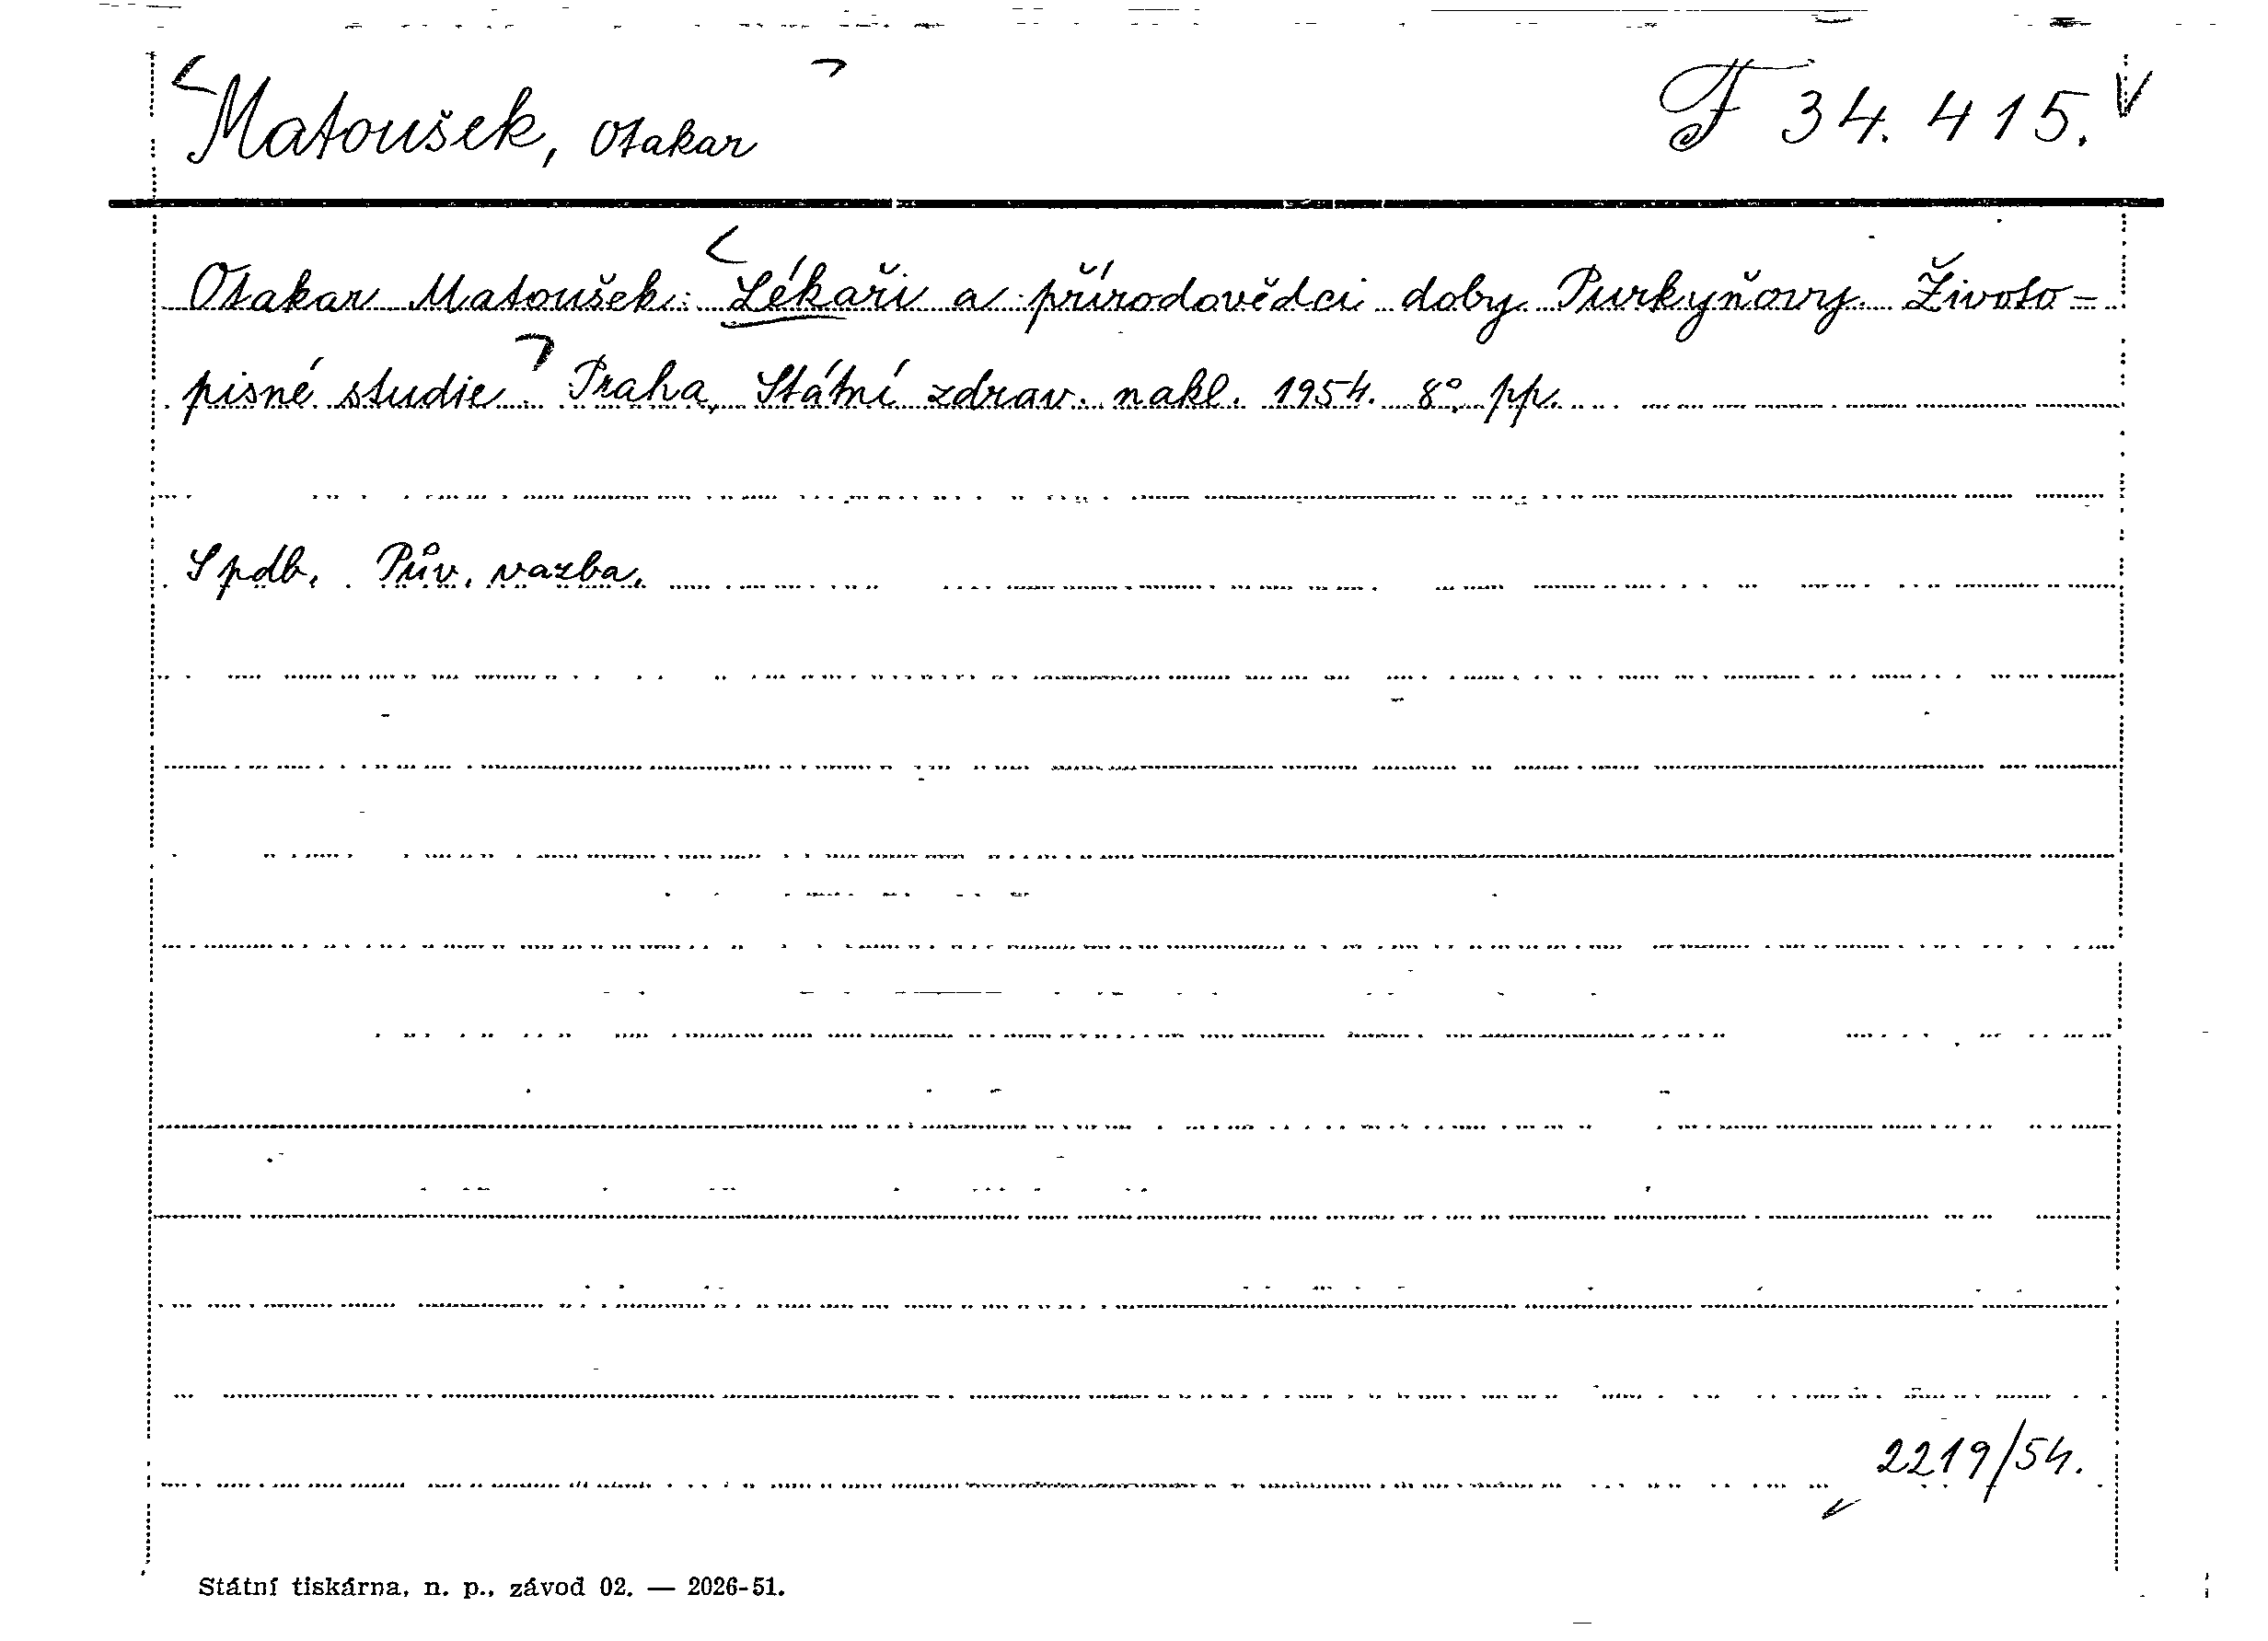 Matoušek, Otakar F 34.415.
Otakar Matoušek: Lékaři a přírodovědci doby Purkyňovy. Životo-
pisné studie. Praha, Státní zdrav. nakl. 1954. 8°, pp.
Spdb. Pův. vazba.
2219/54.
Státní tiskárna, n. p., závod 02. — 2026-51.